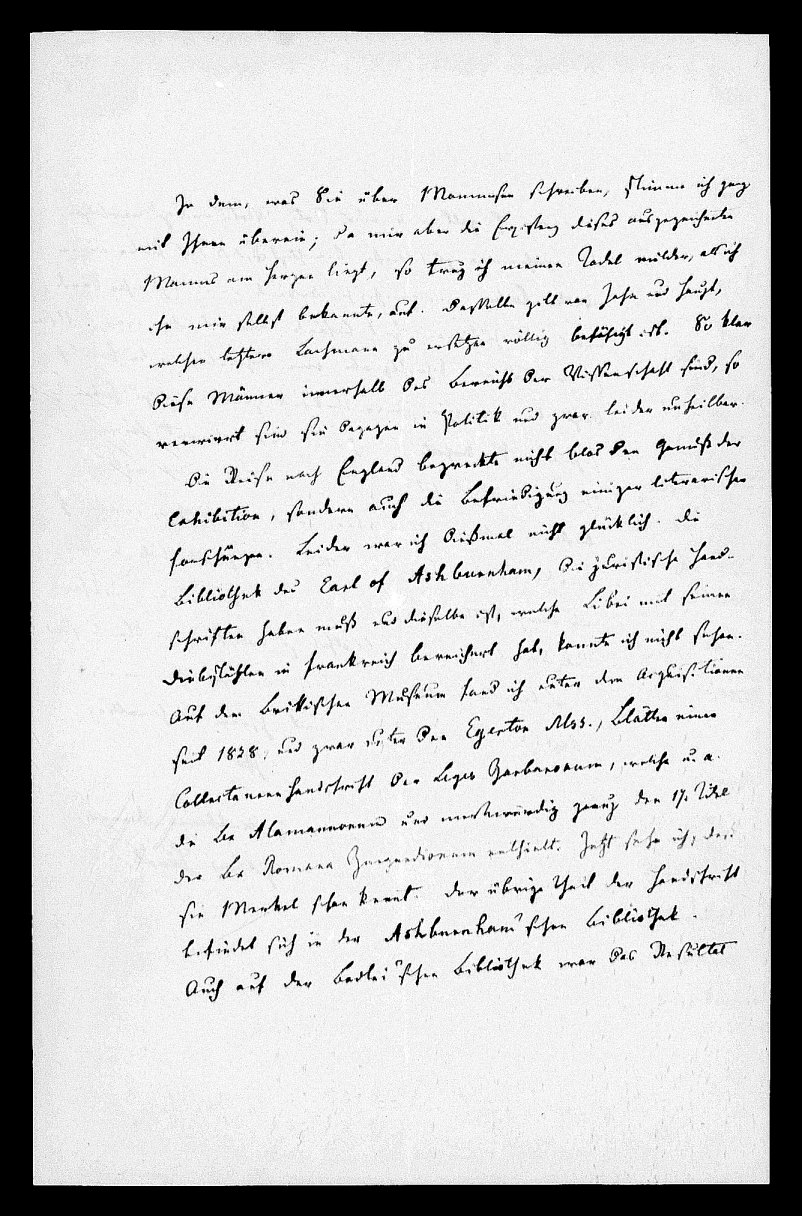 In dem, was Sie über Mommsen schreiben, stimme ich ganz
mit Ihnen überein; da mir aber die Existenz dieses ausgezeichneten
Mannes am Herzen liegt, so trug ich meinen Tadel milder, als ich
ihn mir selbst bekannte, auf. Dasselbe gilt von Jahn und Haupt,
welcher letztere Lachmann zu ersetzen völlig befähigt ist. So klar
diese Männer innerhalb des Bereichs der Wissenschaft sind, so
verwirrt sind sie dagegen in Politik und zwar leider unheilbar.
Die Reise nach England bezweckte nicht blos den Genuß der
Exhibition, sondern auch die Befriedigung einiger literarischer
Forschungen. Leider war ich dießmal nicht glücklich. Die
Bibliothek des Earl of Ashburnham, die juristische Hand-
schriften haben muß und dieselbe ist, welche Libri mit seinen
Diebstählen in Frankreich bereichert hat, konnte ich nicht sehen.
Auf dem Brittischen Museum fand ich unter den Acquisitionen
seit 1828, und zwar unter den Egerton Mss., Blätter einer
Collectaneenhandschrift der Leges Barbarorum, welche u. a.
die Lex Alamannorum und merkwürdig genug den 17. Titel
der Lex Romana Burgundionum enthielt. Jetzt sehe ich, daß
sie Merkel schon kennt. Der übrige Theil der Handschrift
befindet sich in der Ashburnham'schen Bibliothek.
Auch auf der Bodlei'schen Bibliothek war das Resultat